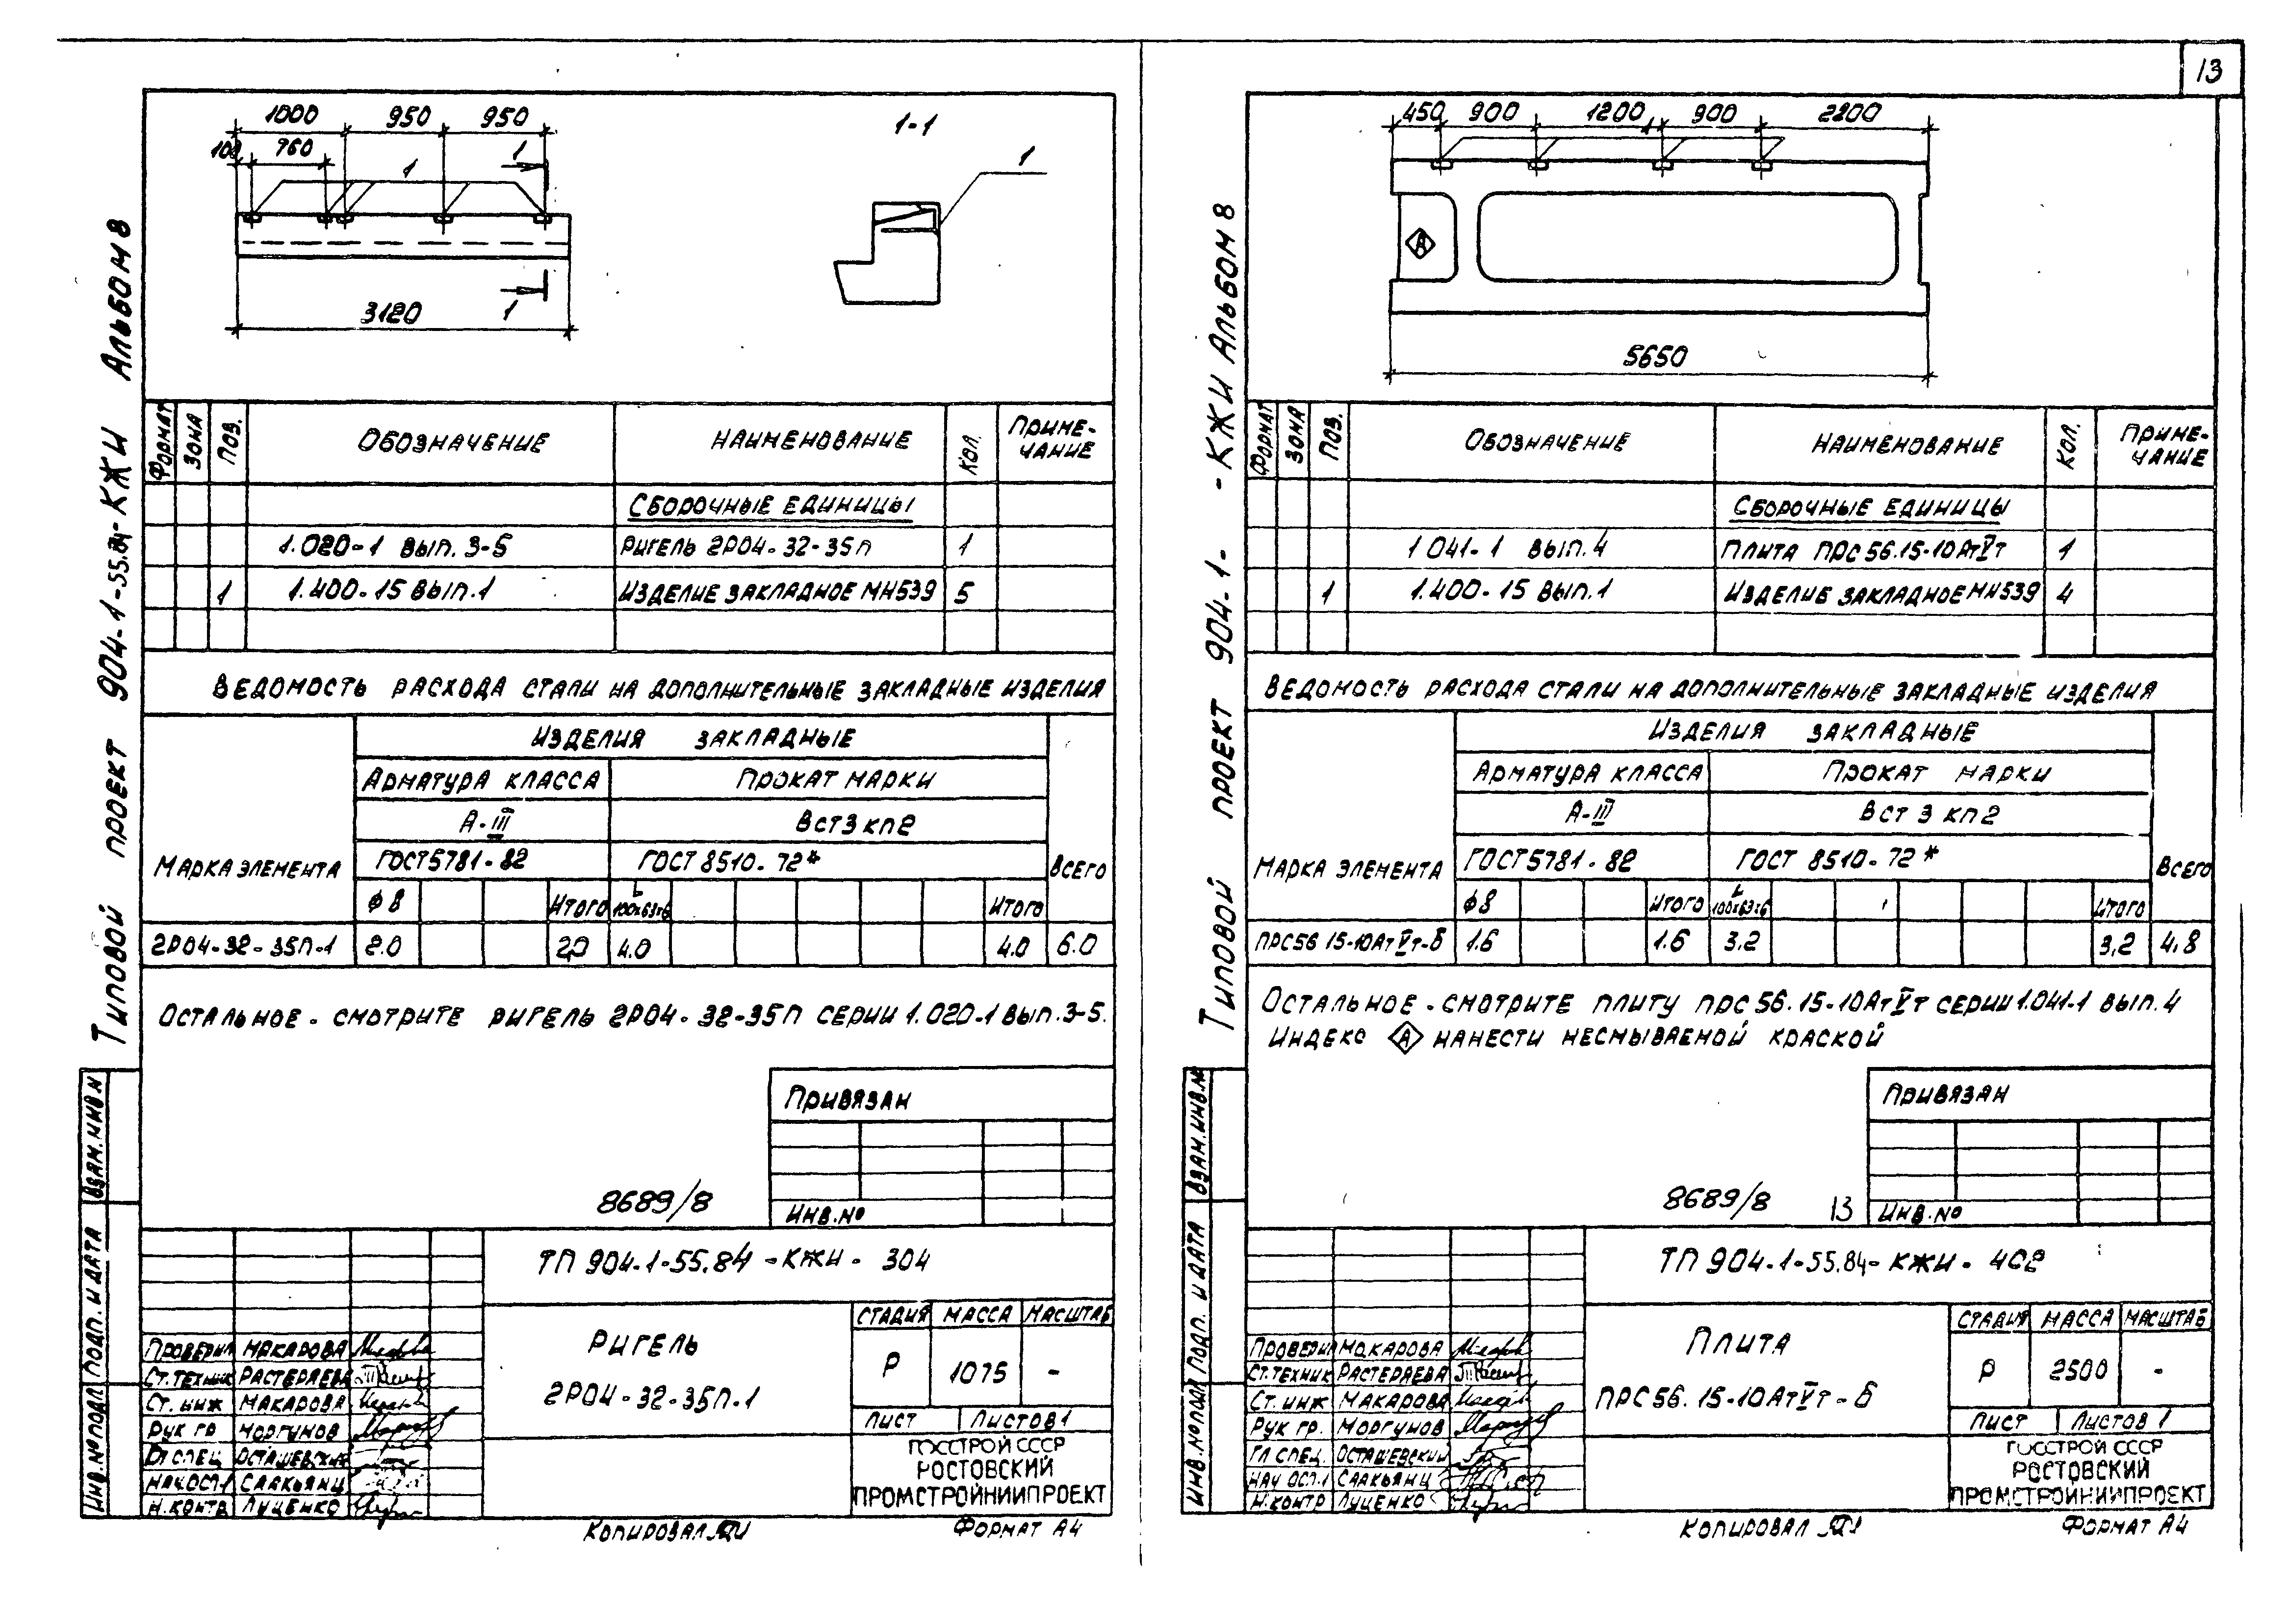 13
1000 950 950
100 760
1
1
3120
1
1-1
1
Типовой проект 904-1-55.84-КЖИ Альбом 8
Формат Зона Поз. Обозначение Наименование Кол. Приме-
чание
Сборочные единицы
1.020-1 вып. 3-5 Ригель 2Р04-32-35П 1
1 1.400-15 вып.1 Изделие закладное МН539 5
Ведомость расхода стали на дополнительные закладные изделия
Изделия закладные
Арматура класса Прокат марки
А-III ВСт3кп2
Марка элемента ГОСТ 5781-82 ГОСТ 8510-72* Всего
ф8 Итого L 100х63х6 Итого
2Р04-32-35П-1 2.0 2,0 4.0 4.0 6.0
Остальное - смотрите ригель 2Р04-32-35П серии 1.020-1 вып.3-5.
Привязан
8689/8
Инв.№
Взам.инв.№
Подп. и дата
Инв.№подл
ТП 904-1-55.84-КЖИ-304
Ригель
2Р04-32-35П-1
Стадия Масса Масштаб
Р 1075 -
Лист Листов 1
Проверил Макарова
Ст.техник Растеряева
Ст. инж Макарова
Рук гр Моргунов
Гл спец Осташевский
Нач.осп.1 Саакьянц
Н.контр Луценко
Госстрой СССР
Ростовский
Промстройниипроект
Копировал Формат А4
450 900 1200 900 2200
А
5650
Типовой проект 904-1- -КЖИ Альбом 8
Формат Зона Поз. Обозначение Наименование Кол. Приме-
чание
Сборочные единицы
1 041-1 вып.4 Плита ПРС 56.15-10АтVт 1
1 1.400-15 вып.1 Изделие закладное МН539 4
Ведомость расхода стали на дополнительные закладные изделия
Изделия закладные
Арматура класса Прокат марки
А-III ВСт 3 кп2
Марка элемента ГОСТ 5781-82 ГОСТ 8510-72* Всего
ф8 Итого L 100х63х6 Итого
ПРС56 15-10АтVт-б 1.6 1.6 3.2 3,2 4,8
Остальное - смотрите плиту ПРС 56.15-10АтVт серии 1.041-1 вып. 4
Индекс А нанести несмываемой краской
Привязан
8689/8 13
Инв.№
Взам.инв.№
Подп. и дата
Инв.№подл
ТП 904-1-55.84-КЖИ-402
Плита
ПРС56.15-10АтVт-б
Стадия Масса Масштаб
Р 2500 -
Лист Листов 1
Проверил Макарова
Ст.техник Растеряева
Ст.инж Макарова
Рук гр. Моргунов
Гл спец. Осташевский
Нач осп.1 Саакьянц
Н.контр Луценко
Госстрой СССР
Ростовский
Промстройниипроект
Копировал Формат А4